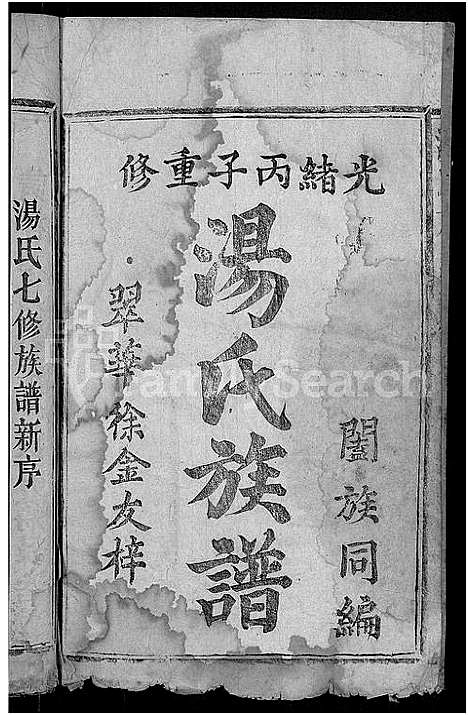 光緒丙子重修
闔族同編
湯氏族譜
翠華徐金友梓
湯氏七修族譜新序
FamilySearch